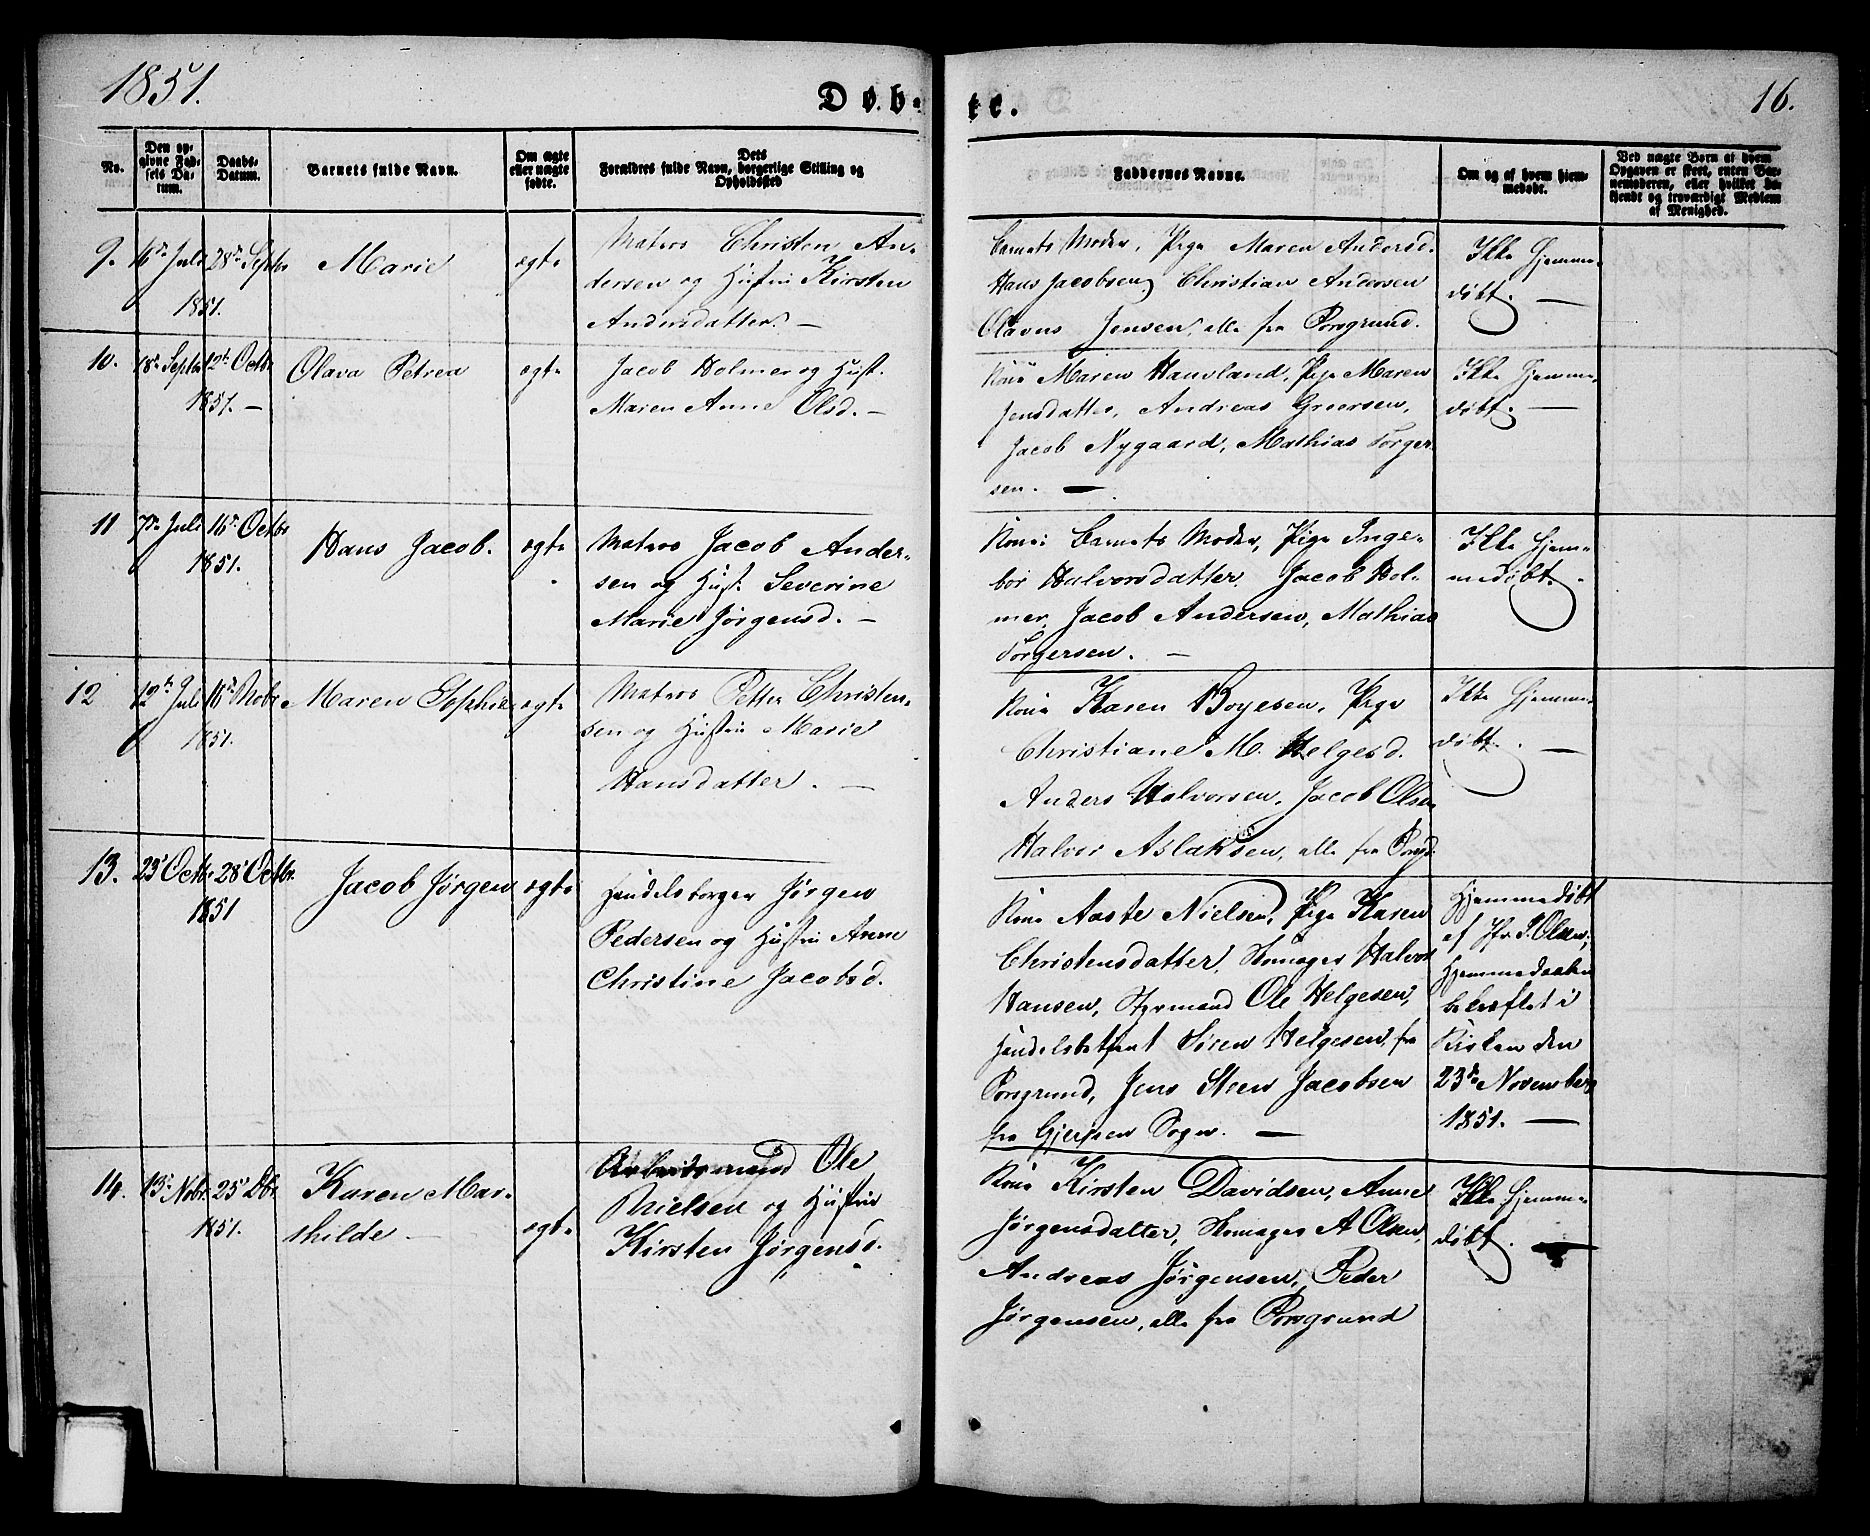 1851.
Døb-
te.
16.
No.
Den op-
givne Fød-
sels Da-
tum.
Daabs-
Datum.
Barnets fulde Navn.
Om ægte
eller uægte
fødte.
Dets
Forældres fulde Navn, borgerlige Stilling og
Opholdssted
Faddernes Navne.
Om og af hvem hjem-
medøbt.
Ved uægte Børn af hvem
Opgaven er skeet, enten Bar-
nemoderen, eller hvilket be-
kjendt og troværdigt Medlem
af Menighed.
9.
16de Juli
28de Septbr
1851.
Marie
ægte
Matros Christen An-
dersen og Hustru Kirsten
Andersdatter. —
Barnets Moder, Pige Maren Andersd.
Hans Jacobsen, Christian Andersen
Olavus Jensen, alle fra Porsgrund.
Ikke Hjemme-
døbt. —
10.
18de Septbr
12te Octbr
1851. —
Olava Petrea
ægte
Jacob Holmer og Hust.
Maren Anne Olsd. —
Kone Maren Hauvland, Pige Maren
Jensdatter, Andreas Greersen,
Jacob Nygaard, Mathias Torger-
sen. —
Ikke Hjemme-
døbt. —
11
7de Juli
16de Octbr
1851.
Hans Jacob.
ægte
Matros Jacob Ander-
sen og Hust. Severine
Marie Jørgensd. —
Kone: Barnets Moder, Pige Inge-
bor Halvorsdatter. Jacob Hol-
mer, Jacob Andersen, Mathias
Torgersen. —
Ikke Hjem-
medøbt. -
12
12te Juli
16de Nobr
1851.
Maren Sophie
ægte
Matros Petter Christen-
sen og Hustru Marie
Hansdatter. —
Kone Karen Boyesen, Pige
Christiane M. Helgesd.
Anders Halvorsen, Jacob Olsen
Halvor Aslaksen, alle fra Porsgd.
Ikke Hjemme-
døbt. —
13.
23' Octbr
28' Octbr.
1851
Jacob Jørgen
ægte
Handelsborger Jørgen
Pedersen og Hustru Anne
Christine Jacobsd.
Kone Aaste Nielsen, Pige Karen
Christensdatter, Skomager Halvor
Hansen, Styrmand Ole Helgesen,
Handelsbetjent Søren Helgesen, fra
Porsgrund, Jens Steen Jacobsen
fra Gjerpen Sogn. —
Hjemmedøbt
af Hr. P. Olsen,
Hjemmedaaben
bekræftet i
Kirken den
23de November
1851. —
14.
13de Nobr.
25' Dbr.
1851.
Karen Mat-
thilde —
ægte
Arbeidsmand Ole
Nielsen og Hustru
Kirsten Jørgensd.
Kone Kirsten Davidsen, Anne
Jørgensdatter, Skomager A Olsen,
Andreas Jørgensen, Peder
Jørgensen, alle fra Porsgrund
Ikke Hjemme-
døbt. —